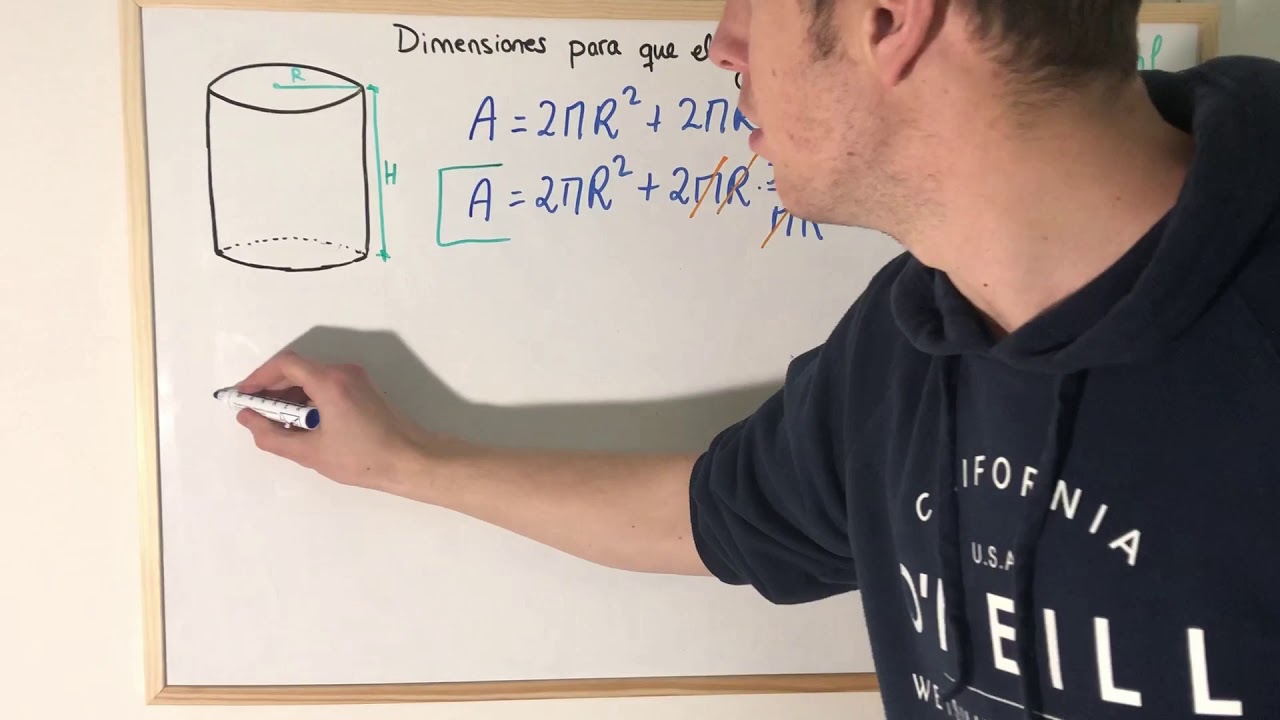 Dimensiones para que el
R
H
A = 2πR² + 2πR
A = 2πR² + 2πR ·
πR
CALIFORNIA
U.S.A
O'NEILL
WE